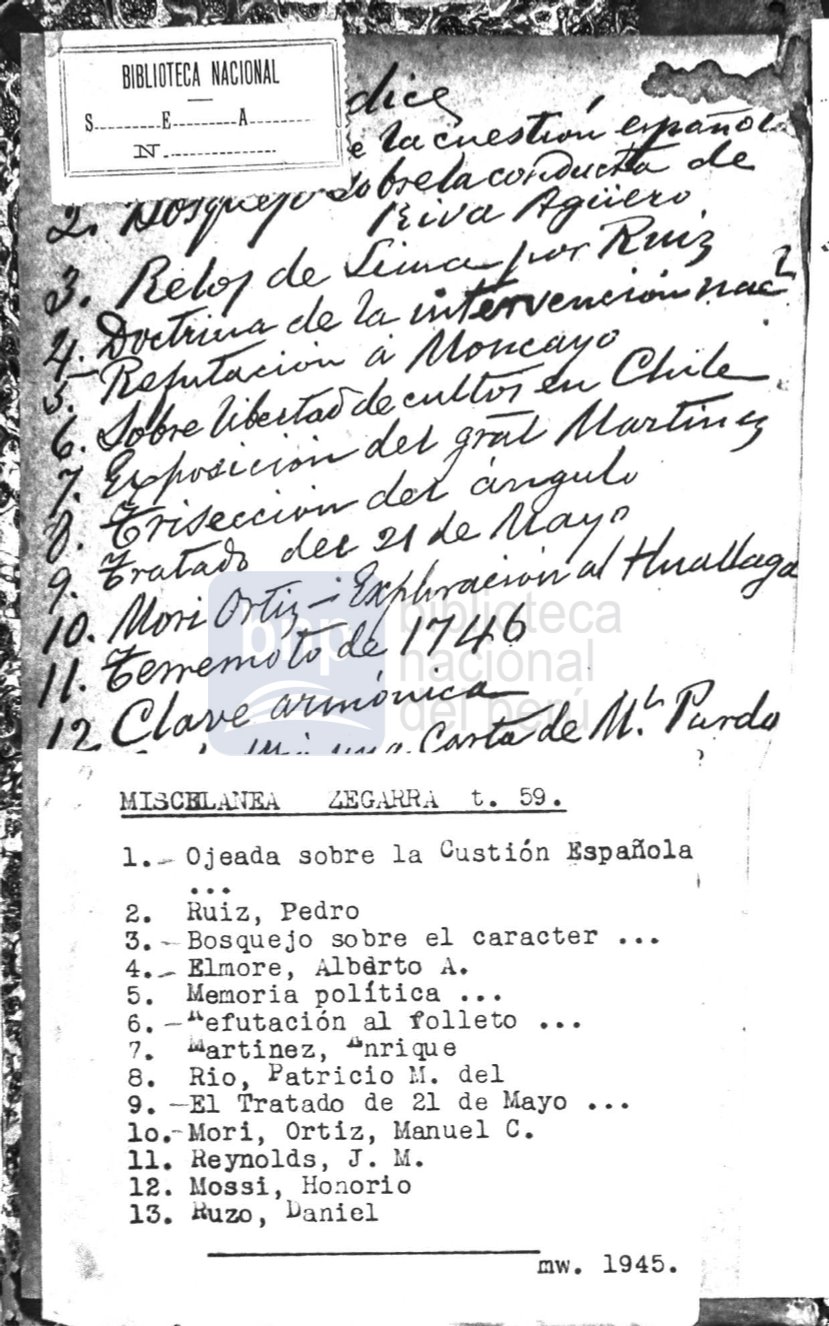 BIBLIOTECA NACIONAL
S.........E.........A.........
N.................
dice
e la cuestión española
2. Bosquejo sobre la conducta de
Riva Agüero
3. Reloj de Lima por Ruiz
4. Doctrina de la intervención nac
5. Refutación á Moncayo
6. Sobre libertad de cultos en Chile
7. Exposición del gral Martinez
8. Trisección del ángulo
9. Tratado del 21 de Mayo
10. Mori Ortiz - Exploración al Huallaga
11. Terremoto de 1746
12 Clave armónica
una Carta de Ml. Pardo
bnp biblioteca
nacional
del perú
MISCELANEA ZEGARRA t. 59.
1.- Ojeada sobre la Custión Española
...
2. Ruiz, Pedro
3.- Bosquejo sobre el caracter ...
4.- Elmore, Albérto A.
5. Memoria política ...
6.- Refutación al folleto ...
7. Martinez, Enrique
8. Rio, Patricio M. del
9. -El Tratado de 21 de Mayo ...
1o.- Mori, Ortiz, Manuel C.
11. Reynolds, J. M.
12. Mossi, Honorio
13. Ruzo, Daniel
mw. 1945.